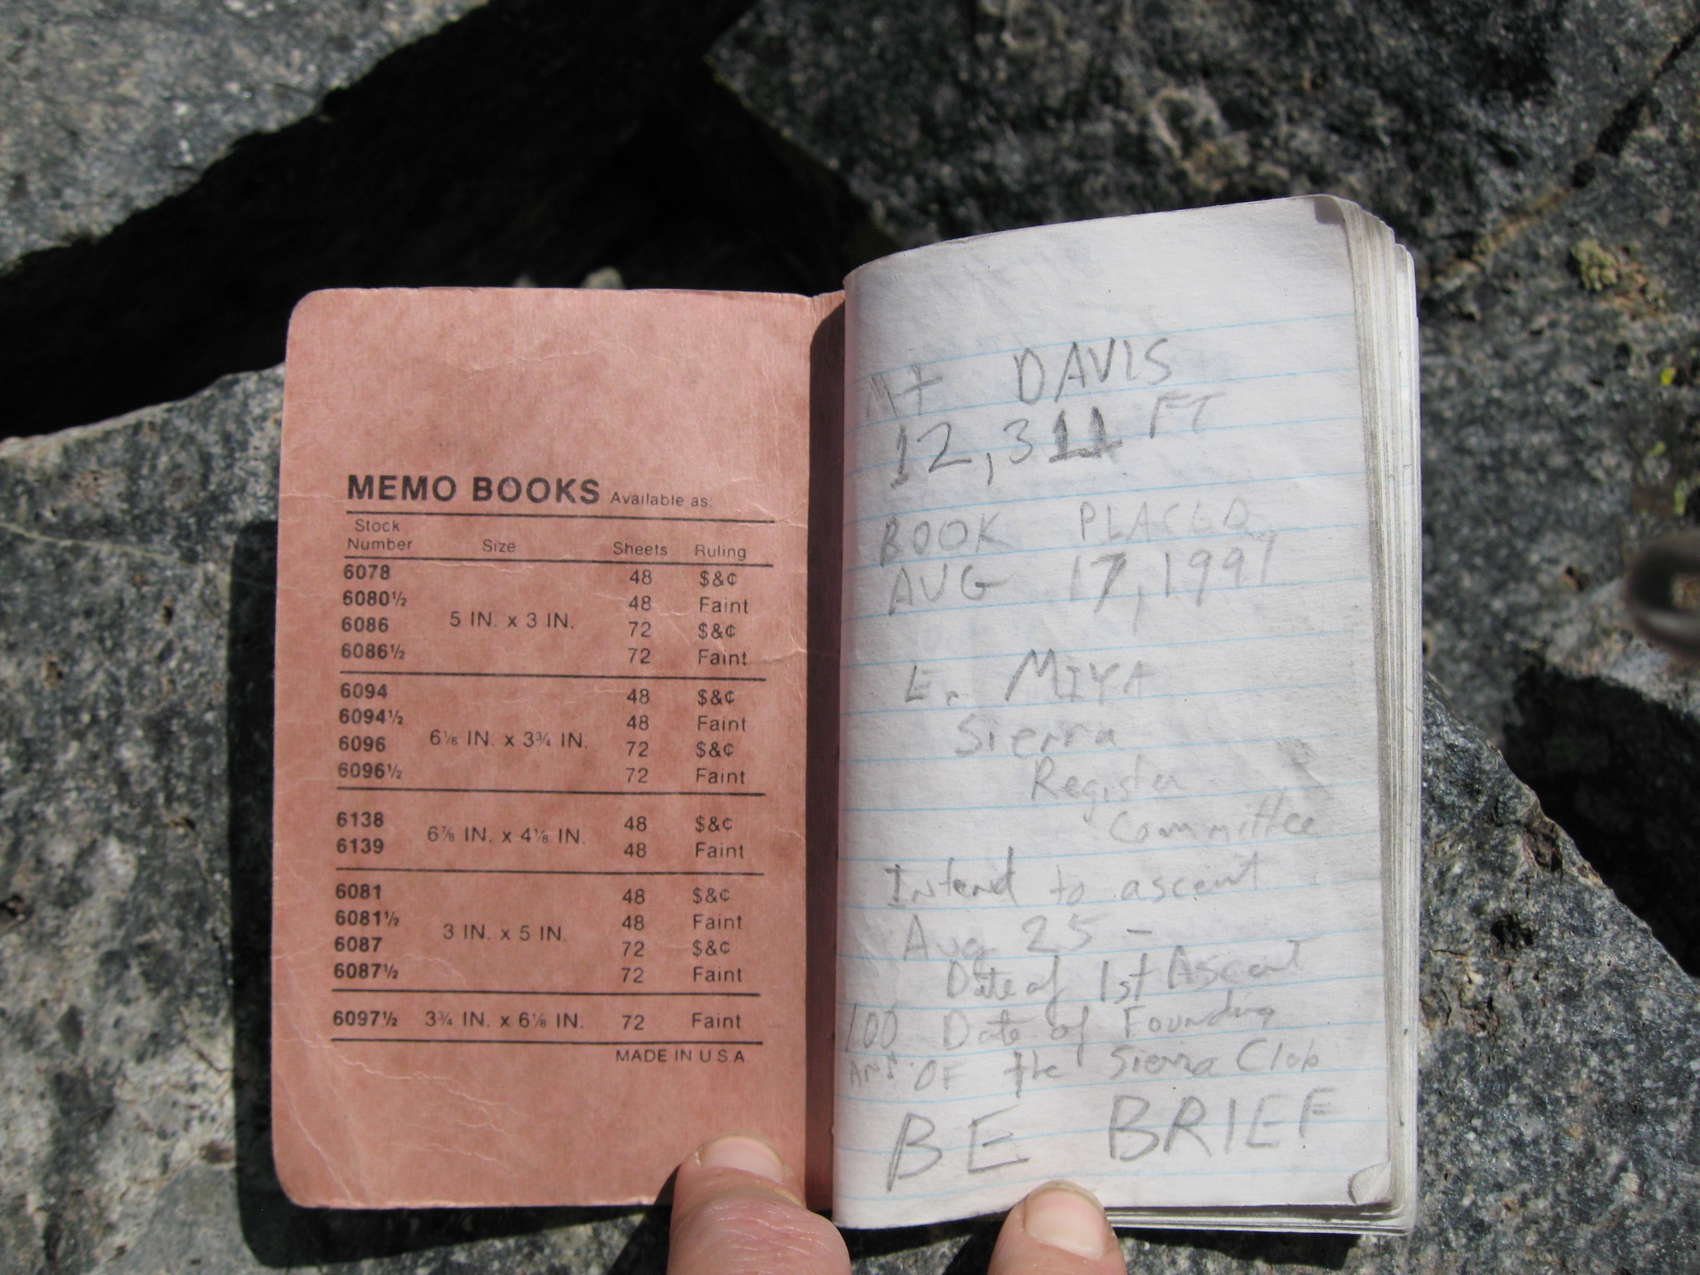 MEMO BOOKS Available as:
Stock Number Size Sheets Ruling
6078 48 $&¢
6080½ 48 Faint
5 IN. x 3 IN.
6086 72 $&¢
6086½ 72 Faint
6094 48 $&¢
6094½ 48 Faint
6⅛ IN. x 3¾ IN.
6096 72 $&¢
6096½ 72 Faint
6138 48 $&¢
6⅞ IN. x 4⅛ IN.
6139 48 Faint
6081 48 $&¢
6081½ 48 Faint
3 IN. x 5 IN.
6087 72 $&¢
6087½ 72 Faint
6097½ 3¾ IN. x 6⅛ IN. 72 Faint
MADE IN U S A
Mt DAVIS
12,311 FT
BOOK PLACED
AUG 17, 1991
E. MIYA
Sierra
Register
Committee
Intend to ascent
Aug 25 -
Date of 1st Ascent
100 Date of Founding
OF the Sierra Club
BE BRIEF